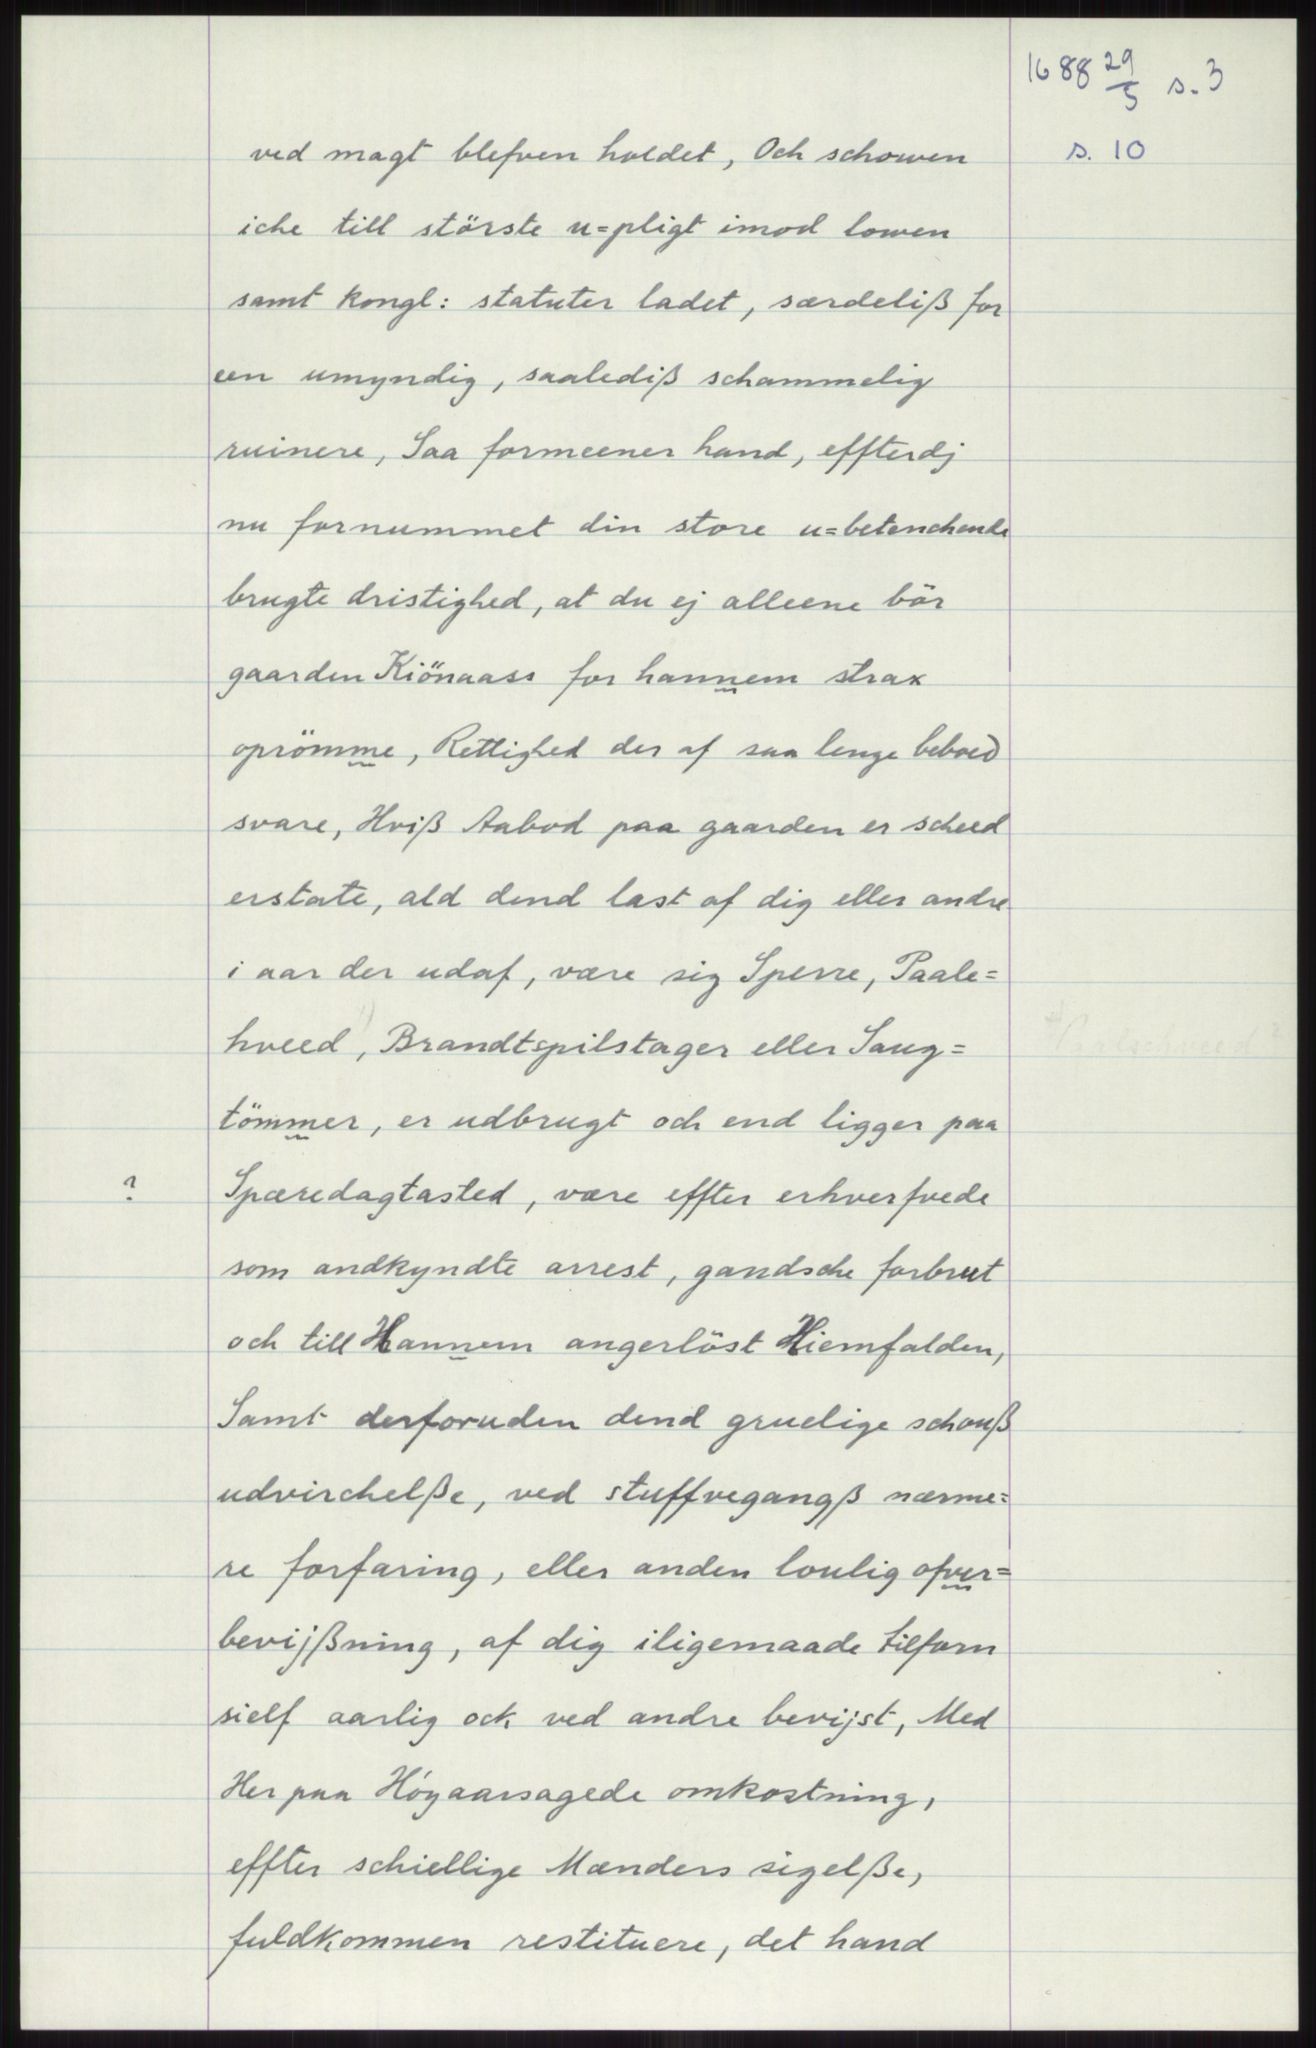 1688 29/5 s. 3
s. 10
ved magt blefven holdet, Och schowen
iche till störste u=pligt imod lowen
samt kongl: statuter ladet, særdeliß for
een umyndig, saalediß schammelig
ruinere, Saa formeener hand, effterdj
nu fornummet din store u=betenchende
brugte dristighed, at du ej alleene bör
gaarden Kiönaass for hannem strax
oprömme, Rettighed der af saa lenge beboed
svare, Hviß Aabod paa gaarden er scheed
erstate, ald dend last af dig eller andre
i aar der udaf, være sig Sperre, Paale=
hveed, Brandtspilstager eller Saug=
tömmer, er udbrugt och end ligger paa
? Spæredagtasted, være effter erhverfvede
som andkyndte arrest, gandsche forbrut
och till Hannem angerlöst Hiemfalden,
Samt derforuden dend gruelige schouß
udvirchelße, ved stuffvegangß nærme=
re forfaring, eller anden loulig ofver=
bevijßning, af dig iligemaade tilforn
sielf aarlig och ved andre bevijst, Med
Her paa Höyaarsagede omkostning,
effter schiellige Mænders sigelße,
fuldkommen restituere, det hand